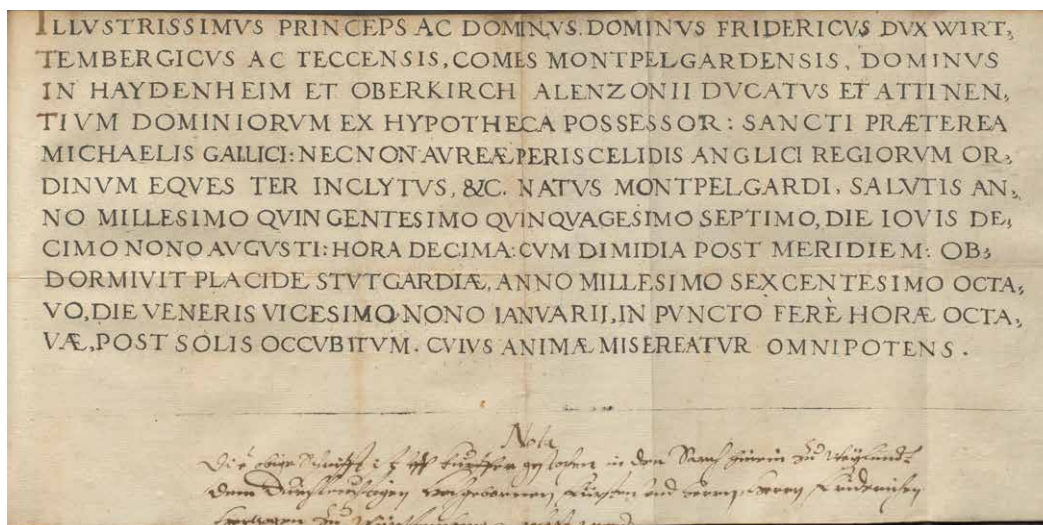 ILLVSTRISSIMVS PRINCEPS AC DOMINVS. DOMINVS FRIDERICVS DVX WIRT,
TEMBERGICVS AC TECCENSIS, COMES MONTPELGARDENSIS, DOMINVS
IN HAYDENHEIM ET OBERKIRCH ALENZONII DVCATVS ET ATTINEN,
TIVM DOMINIORVM EX HYPOTHECA POSSESSOR: SANCTI PRÆTEREA
MICHAELIS GALLICI: NECNON AVREÆ PERISCELIDIS ANGLICI REGIORVM OR,
DINVM EQVES TER INCLYTVS, &C. NATVS MONTPELGARDI, SALVTIS AN,
NO MILLESIMO QVINGENTESIMO QVINQVAGESIMO SEPTIMO, DIE IOVIS DE,
CIMO NONO AVGVSTI: HORA DECIMA: CVM DIMIDIA POST MERIDIEM: OB,
DORMIVIT PLACIDE STVTGARDIÆ, ANNO MILLESIMO SEXCENTESIMO OCTA,
VO, DIE VENERIS VICESIMO NONO IANVARIJ, IN PVNCTO FERÈ HORÆ OCTA,
VÆ, POST SOLIS OCCVBITVM. CVIVS ANIMÆ MISEREATVR OMNIPOTENS.
Nota
Die obige Schrifft in den Sarch zu
dem Durchleuchtigen Hochgebornen Fürsten und Herren Herren Friderichen